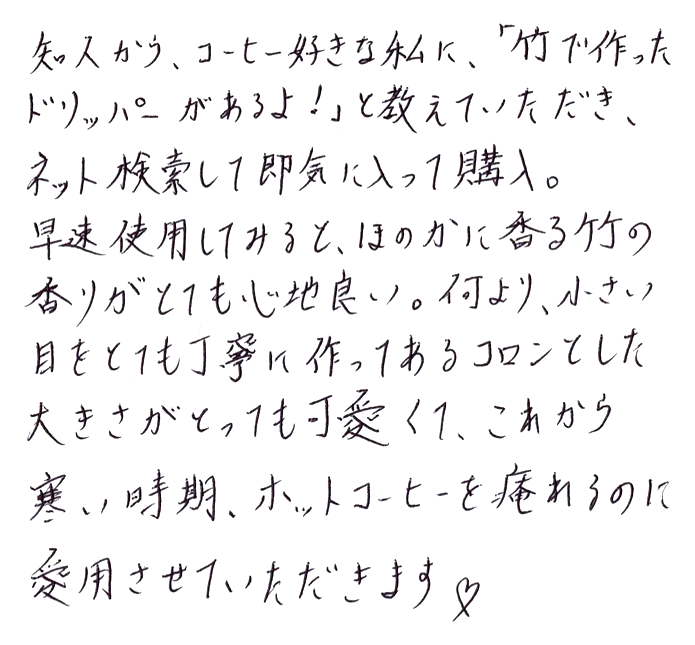 知人から、コーヒー好きな私に、「竹で作った
ドリッパーがあるよ！」と教えていただき、
ネット検索して即気に入って購入。
早速使用してみると、ほのかに香る竹の
香りがとても心地良い。何より、小さい
目をとても丁寧に作ってあるコロンとした
大きさがとっても可愛くて、これから
寒い時期、ホットコーヒーを庵れるのに
愛用させていただきます♡